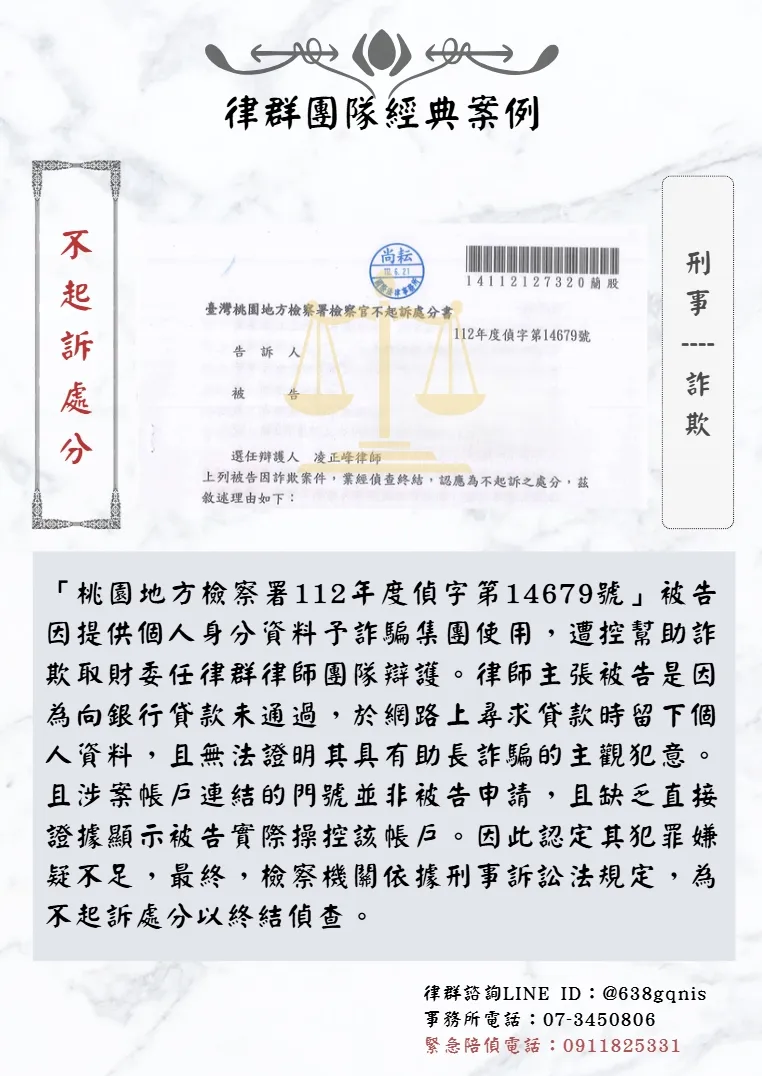 律群團隊經典案例
不起訴處分
刑事----詐欺
尚耘
14112127320蘭股
臺灣桃園地方檢察署檢察官不起訴處分書
112年度偵字第14679號
告訴人
被告
選任辯護人 凌正峰律師
上列被告因詐欺案件，業經偵查終結，認應為不起訴之處分，茲
敘述理由如下：
「桃園地方檢察署112年度偵字第14679號」被告
因提供個人身分資料予詐騙集團使用，遭控幫助詐
欺取財委任律群律師團隊辯護。律師主張被告是因
為向銀行貸款未通過，於網路上尋求貸款時留下個
人資料，且無法證明其具有助長詐騙的主觀犯意。
且涉案帳戶連結的門號並非被告申請，且缺乏直接
證據顯示被告實際操控該帳戶。因此認定其犯罪嫌
疑不足，最終，檢察機關依據刑事訴訟法規定，為
不起訴處分以終結偵查。
律群諮詢LINE ID：@638gqnis
事務所電話：07-3450806
緊急陪偵電話：0911825331